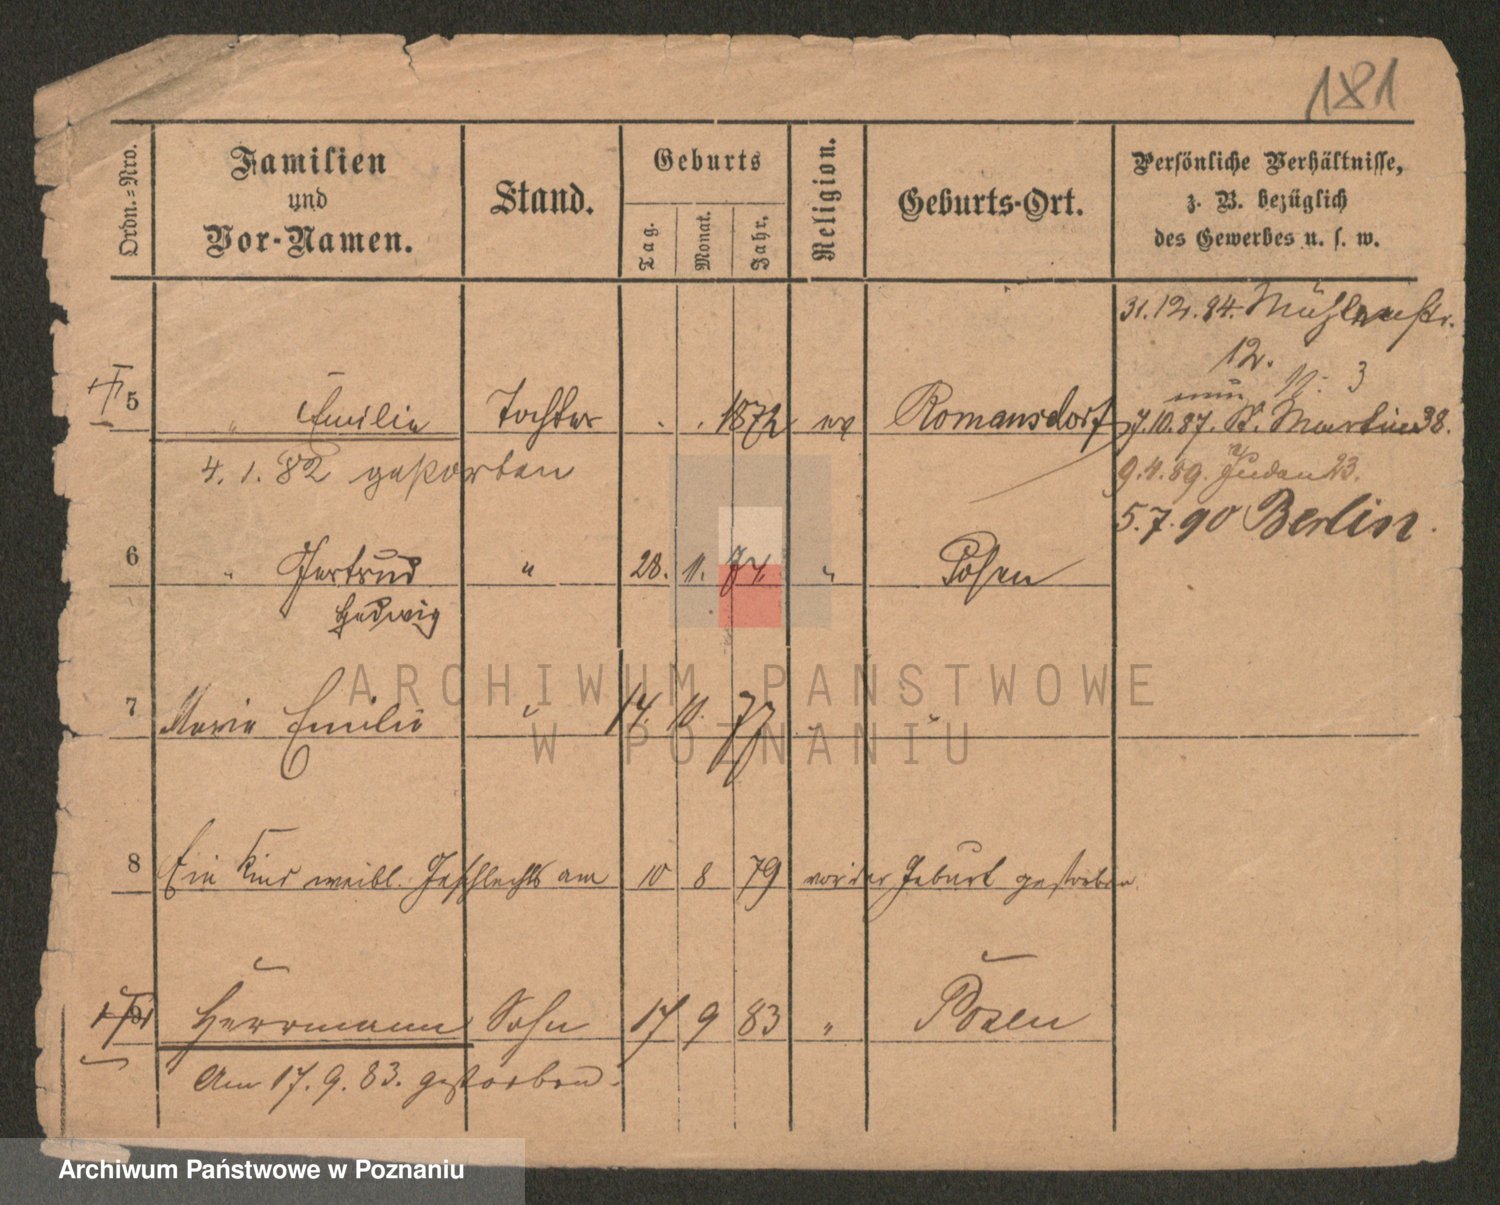 181
Ordn.-Nro.
Familien
und
Vor-Namen.
Stand.
Geburts
Tag.
Monat.
Jahr.
Religion.
Geburts-Ort.
Persönliche Verhältnisse,
z. B. bezüglich
des Gewerbes u. s. w.
31.12.84. Mühlenstr.
12.
5 " Emilie Tochter . . 1872 ev Romansdorf
7.10.87. St. Martin 38.
4.1.82 gestorben
9.4.89. Juden 23.
5.7.90 Berlin.
6 " Gertrud " 28. 11. 74. " Posen
Hedwig
7 Marie Emilie " 14. 10. 77 " "
8 Ein Kind weibl. Geschlechts am 10 8 79 vor der Geburt gestorben
9 Herrmann Sohn 17 9 83 " Posen
Am 17.9.83. gestorben.
ARCHIWUM PAŃSTWOWE
W POZNANIU
Archiwum Państwowe w Poznaniu